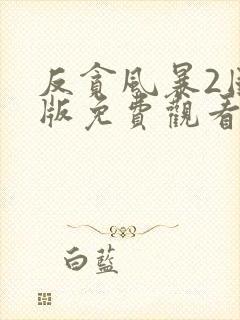 反貪風暴2
版免費觀看
白藍